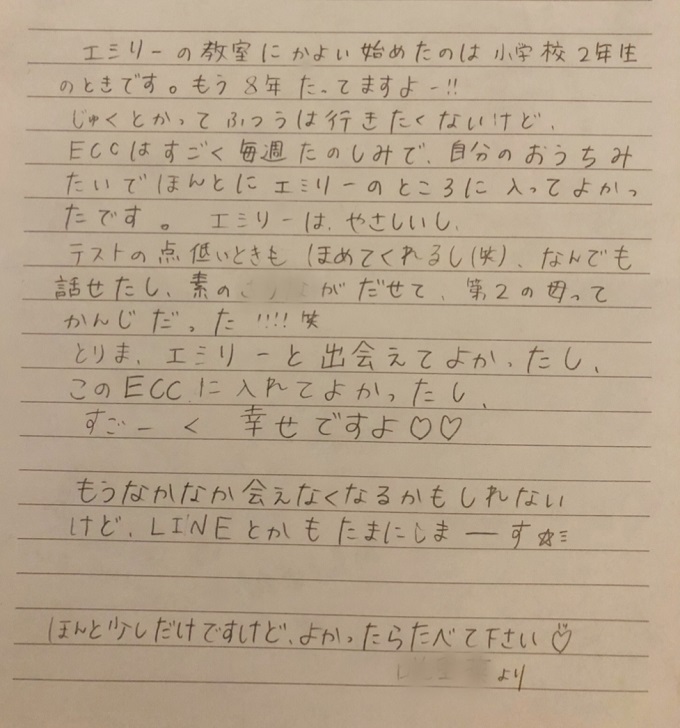 エミリーの教室にかよい始めたのは小学校2年生
のときです。もう8年たってますよー!!
じゅくとかってふつうは行きたくないけど、
ECCはすごく毎週たのしみで、自分のおうちみ
たいでほんとにエミリーのところに入ってよかっ
たです。エミリーは、やさしいし、
テストの点低いときもほめてくれるし(笑)、なんでも
話せたし、素の がだせて、第2の母って
かんじだった!!!!笑
とりま、エミリーと出会えてよかったし、
このECCに入れてよかったし、
すごーく幸せですよ♡♡
もうなかなか会えなくなるかもしれない
けど、LINEとかもたまにしまーす☆ミ
ほんと少しだけですけど、よかったらたべて下さい♡
より